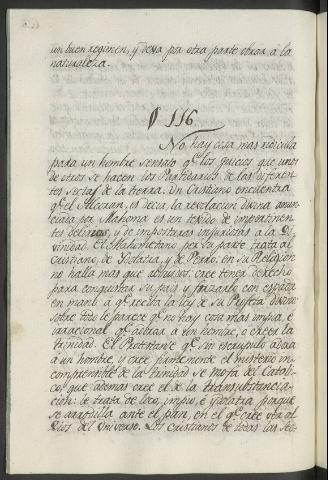 un buen regimen, y dexa por otra parte obrar a la
naturaleza.
§ 116
No hay cosa mas ridicula
para un hombre sensato qe los juicios que unos
de otros se hacen los Partidarios de las diferen
tes sectas de la tierra. Un Cristiano encuentra
qe el Alcoran, es decir, la revelacion divina anun
ciada por Mahoma es un texido de impertinen
tes delirios, y de imposturas injuriosas a la Di
vinidad. El Mahometano por su parte trata al
Cristiano, de Idolatra, y de Perro: en su Religion
no halla mas que absurdos: cree tener derecho
para conquistar su pais y forzarlo con espada
en mano a qe reciba la ley de su Profeta divino
sobre todo le parece qe no hay cosa mas impia, e
irracional qe adorar a un hombre, o creer la
trinidad. El Protestante qe sin escrupulo adora
a un hombre, y cree firmemente el misterio in
comprensible de la trinidad se mofa del Catoli
co, que ademas cree el de la transubstancia
cion: le trata de loco, impio, e idolatra porque
se arrodilla ante el pan, en el qe cree ver al
Dios del Universo. Los cristianos de todas las Sec-